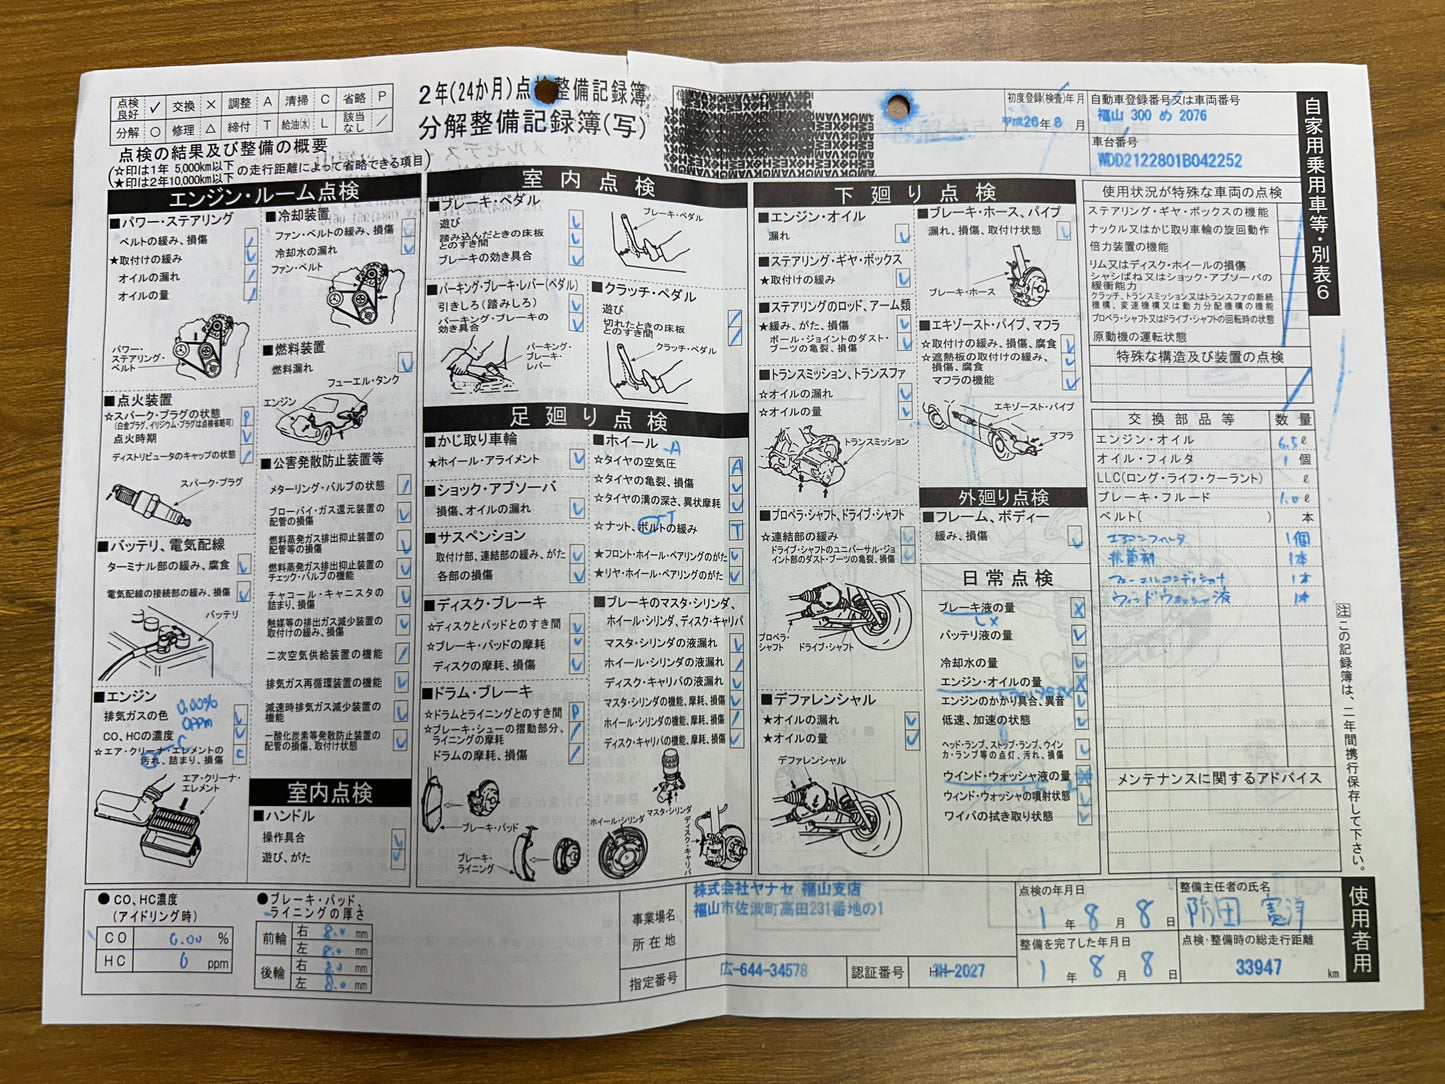 点検良好 ✓ 交換 × 調整 A 清掃 C 省略 P
分解 ○ 修理 △ 締付 T 給油(水) L 該当なし ／
2年(24か月)点検整備記録簿
分解整備記録簿(写)
初度登録(検査)年月
平成26年8月
自動車登録番号又は車両番号
福山 300 め 2076
車台番号
WDD2122801B042252
自家用乗用車等・別表6
点検の結果及び整備の概要
(☆印は1年 5,000km以下
★印は2年10,000km以下
の走行距離によって省略できる項目)
エンジン・ルーム点検
■パワー・ステアリング
ベルトの緩み、損傷
★取付けの緩み
オイルの漏れ
オイルの量
パワー・ステアリング・ベルト
■点火装置
☆スパーク・プラグの状態 P
(白金プラグ、イリジウム・プラグは点検省略可)
点火時期
ディストリビュータのキャップの状態
スパーク・プラグ
■バッテリ、電気配線
ターミナル部の緩み、腐食
電気配線の接続部の緩み、損傷
バッテリ
■エンジン
排気ガスの色
0.00%
0ppm
CO、HCの濃度
☆エア・クリーナ・エレメントの汚れ、詰まり、損傷 C
エア・クリーナ・エレメント
■冷却装置
ファン・ベルトの緩み、損傷
冷却水の漏れ
ファン・ベルト
■燃料装置
燃料漏れ
フューエル・タンク
エンジン
■公害発散防止装置等
メターリング・バルブの状態
ブローバイ・ガス還元装置の配管の損傷
燃料蒸発ガス排出抑止装置の配管等の損傷
燃料蒸発ガス排出抑止装置のチェック・バルブの機能
チャコール・キャニスタの詰まり、損傷
触媒等の排出ガス減少装置の取付けの緩み、損傷
二次空気供給装置の機能
排気ガス再循環装置の機能
減速時排気ガス減少装置の機能
一酸化炭素等発散防止装置の配管の損傷、取付け状態
室内点検
■ハンドル
操作具合
遊び、がた
室内点検
■ブレーキ・ペダル
遊び
踏み込んだときの床板とのすき間
ブレーキの効き具合
ブレーキ・ペダル
■パーキング・ブレーキ・レバー(ペダル)
引きしろ(踏みしろ)
パーキング・ブレーキの効き具合
パーキング・ブレーキ・レバー
■クラッチ・ペダル
遊び
切れたときの床板とのすき間
クラッチ・ペダル
足廻り点検
■かじ取り車輪
★ホイール・アライメント
■ショック・アブソーバ
損傷、オイルの漏れ
■サスペンション
取付部、連結部の緩み、がた
各部の損傷
■ディスク・ブレーキ
☆ディスクとパッドとのすき間
☆ブレーキ・パッドの摩耗
ディスクの摩耗、損傷
■ドラム・ブレーキ
☆ドラムとライニングとのすき間 P
☆ブレーキ・シューの摺動部分、ライニングの摩耗
ドラムの摩耗、損傷
ブレーキ・パッド
ブレーキ・ライニング
■ホイール
A
☆タイヤの空気圧 A
☆タイヤの亀裂、損傷
☆タイヤの溝の深さ、異状摩耗
☆ナット、ボルトの緩み T
★フロント・ホイール・ベアリングのがた
★リヤ・ホイール・ベアリングのがた
■ブレーキのマスタ・シリンダ、ホイール・シリンダ、ディスク・キャリパ
マスタ・シリンダの液漏れ
ホイール・シリンダの液漏れ
ディスク・キャリパの液漏れ
マスタ・シリンダの機能、摩耗、損傷
ホイール・シリンダの機能、摩耗、損傷
ディスク・キャリパの機能、摩耗、損傷
マスタ・シリンダ
ホイール・シリンダ
ディスク・キャリパ
下廻り点検
■エンジン・オイル
漏れ
■ステアリング・ギヤ・ボックス
★取付けの緩み
■ステアリングのロッド、アーム類
★緩み、がた、損傷
ボール・ジョイントのダスト・ブーツの亀裂、損傷
■トランスミッション、トランスファ
☆オイルの漏れ
☆オイルの量
トランスミッション
■プロペラ・シャフト、ドライブ・シャフト
☆連結部の緩み
ドライブ・シャフトのユニバーサル・ジョイント部のダスト・ブーツの亀裂、損傷
プロペラ・シャフト
ドライブ・シャフト
■デファレンシャル
★オイルの漏れ
★オイルの量
デファレンシャル
■ブレーキ・ホース、パイプ
漏れ、損傷、取付け状態
ブレーキ・ホース
■エキゾースト・パイプ、マフラ
☆取付けの緩み、損傷、腐食
☆遮熱板の取付けの緩み、損傷、腐食
マフラの機能
エキゾースト・パイプ
マフラ
外廻り点検
■フレーム、ボディー
緩み、損傷
日常点検
ブレーキ液の量 ×
バッテリ液の量
冷却水の量
エンジン・オイルの量 ×
エンジンのかかり具合、異音
低速、加速の状態
ヘッド・ランプ、ストップ・ランプ、ウインカ・ランプ等の点灯、汚れ、損傷
ウインド・ウォッシャ液の量
ウインド・ウォッシャの噴射状態
ワイパの拭き取り状態
使用状況が特殊な車両の点検
ステアリング・ギヤ・ボックスの機能
ナックル又はかじ取り車輪の旋回動作
倍力装置の機能
リム又はディスク・ホイールの損傷
シャシばね又はショック・アブソーバの緩衝能力
クラッチ、トランスミッション又はトランスファの断続機構、変速機構又は動力分配機構の機能
プロペラ・シャフト又はドライブ・シャフトの回転時の状態
原動機の運転状態
特殊な構造及び装置の点検
交換部品等 数量
エンジン・オイル 6.5ℓ
オイル・フィルタ 1個
LLC(ロング・ライフ・クーラント) ℓ
ブレーキ・フルード 1.0ℓ
ベルト( ) 本
エアコンフィルタ 1個
1本
フューエルコンディショナ 1本
ウィンドウォッシャ液 1本
メンテナンスに関するアドバイス
注 この記録簿は、二年間携行保存して下さい。
使用者用
●CO、HC濃度
(アイドリング時)
CO 0.00 %
HC 0 ppm
●ブレーキ・パッド、ライニングの厚さ
前輪 右 8.0 mm
左 8.0 mm
後輪 右 8.0 mm
左 8.0 mm
事業場名
所在地
株式会社ヤナセ 福山支店
福山市佐波町高田231番地の1
指定番号 広-644-34578 認証番号 3H-2027
点検の年月日
1年8月8日
整備を完了した年月日
1年8月8日
整備主任者の氏名
点検・整備時の総走行距離
33947 km